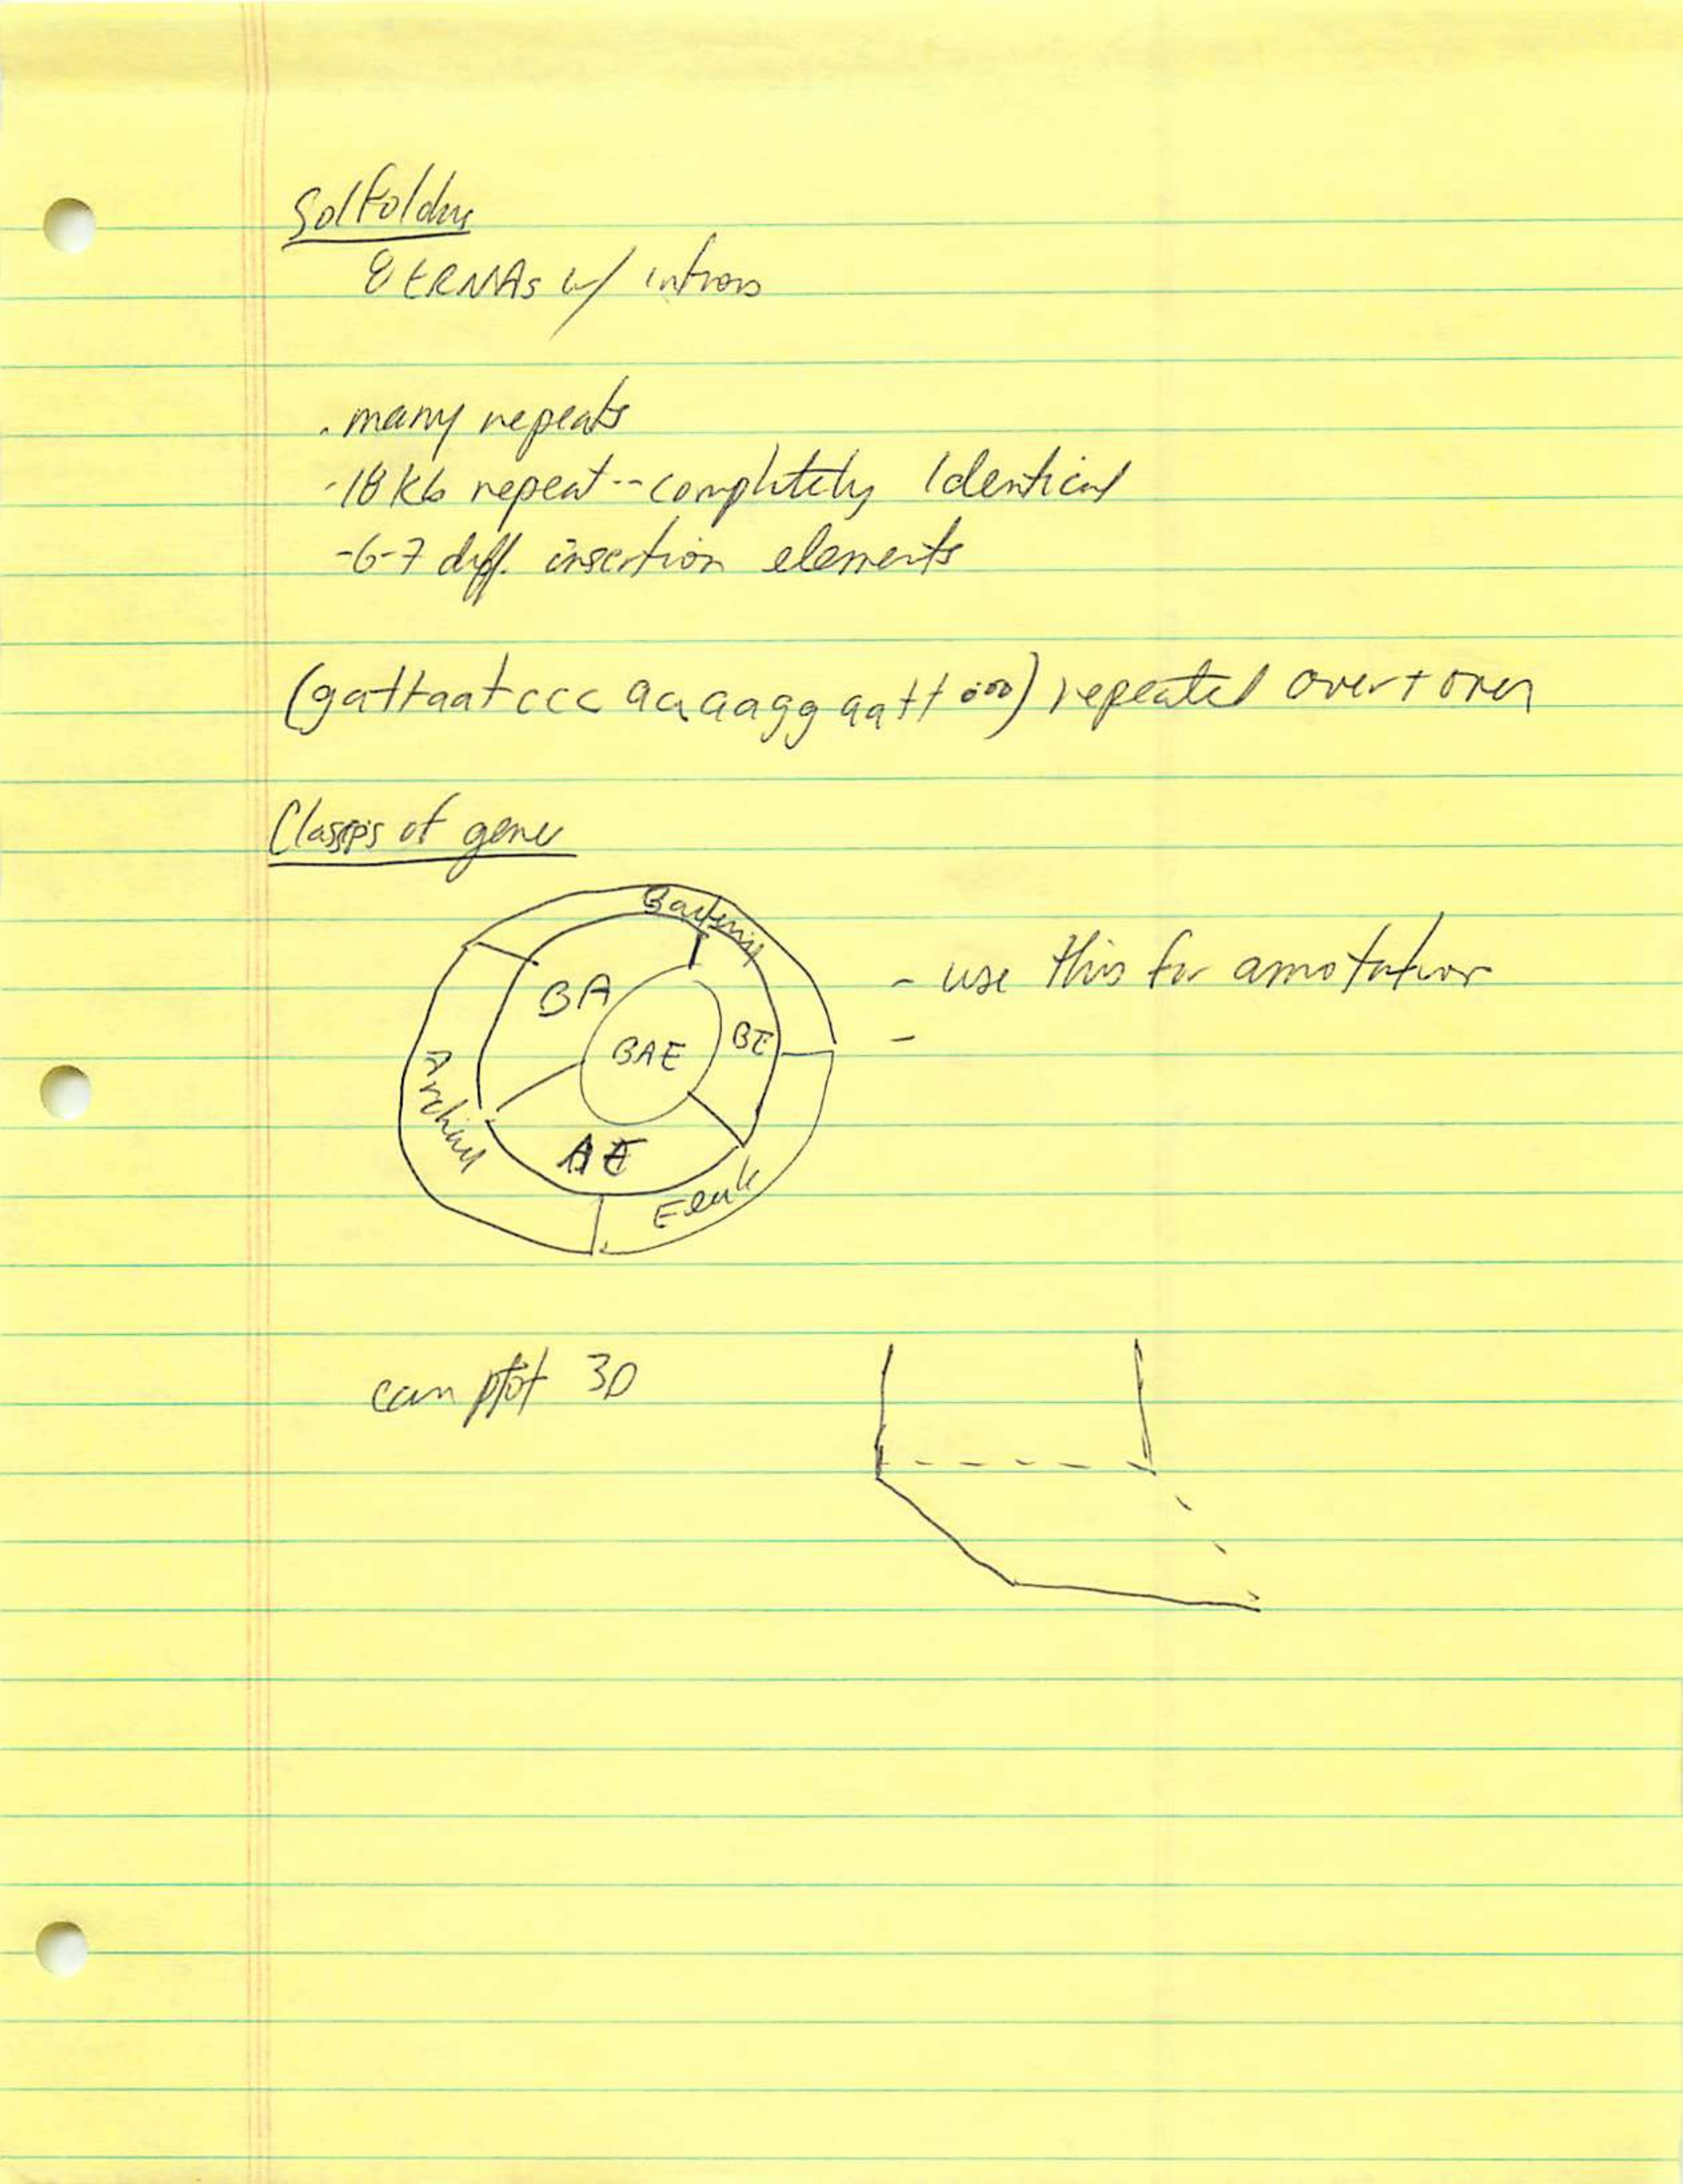 Solfoldus
8 tRNAs w/ introns
. many repeats
-18 kb repeat -- completely Identical
-6-7 diff. insertion elements
(gattaatccc aaaaagg aatt ooo) repeated over + over
Classes of gene
Bacteria
BA
BAE
BE
Archaea
AE
Euk
- use this for annotation
-
can plot 3D